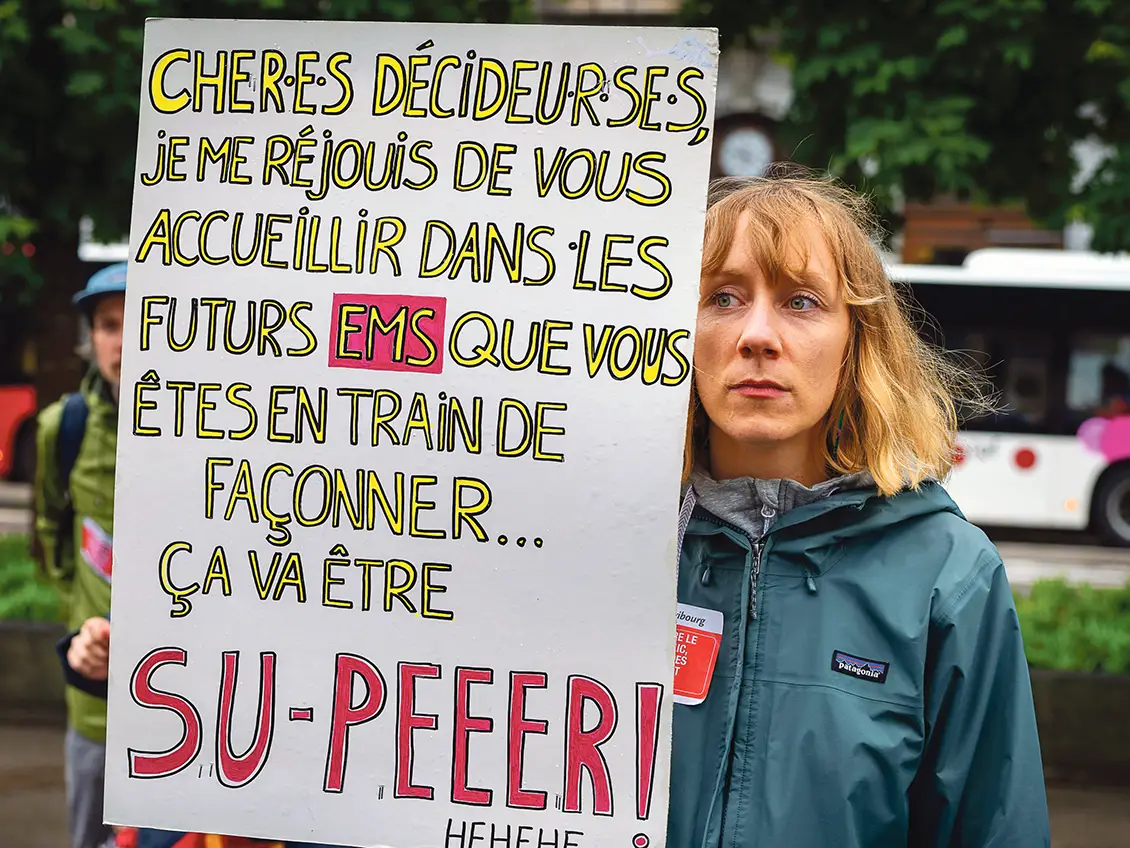 CHER·E·S DÉCIDEUR·SE·S,
JE ME RÉJOUIS DE VOUS
ACCUEILLIR DANS LES
FUTURS EMS QUE VOUS
ÊTES EN TRAIN DE
FAÇONNER...
ÇA VA ÊTRE
SU-PEEER!
HEHEHE
patagonia